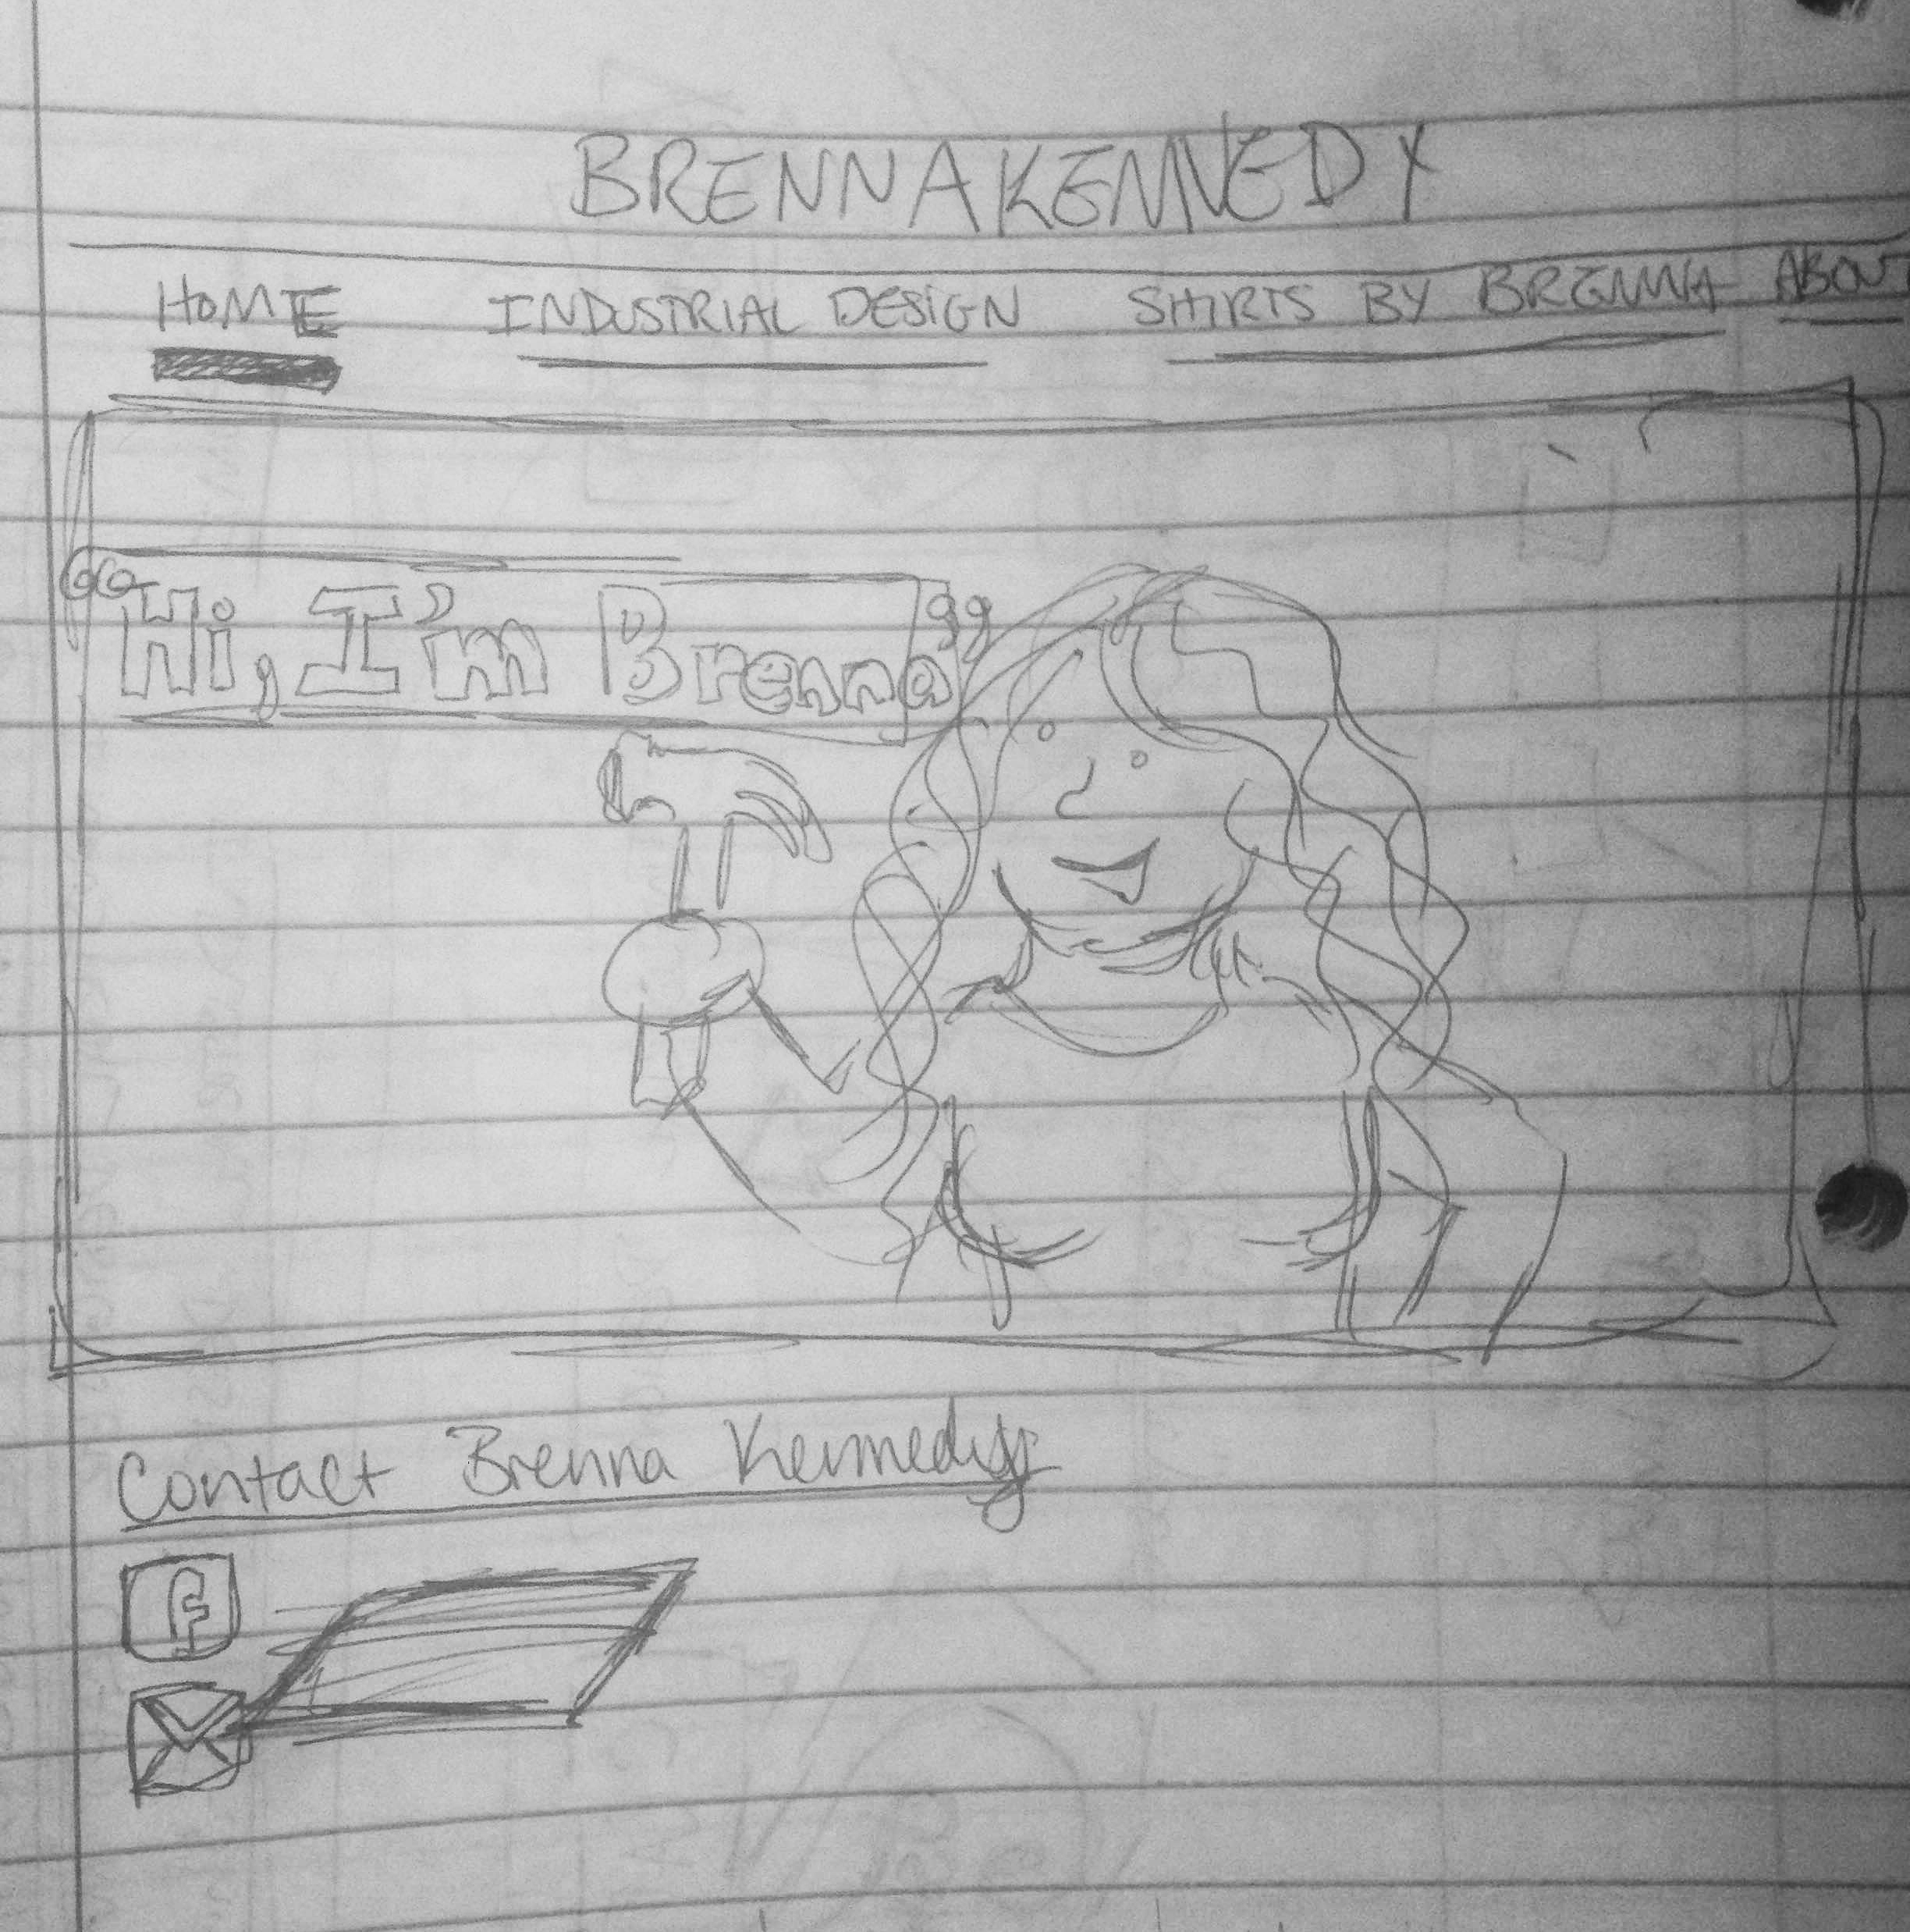 BRENNA KENNEDY
HOME INDUSTRIAL DESIGN SHIRTS BY BRENNA ABOUT
“Hi, I'm Brenna”
Contact Brenna Kennedy
f